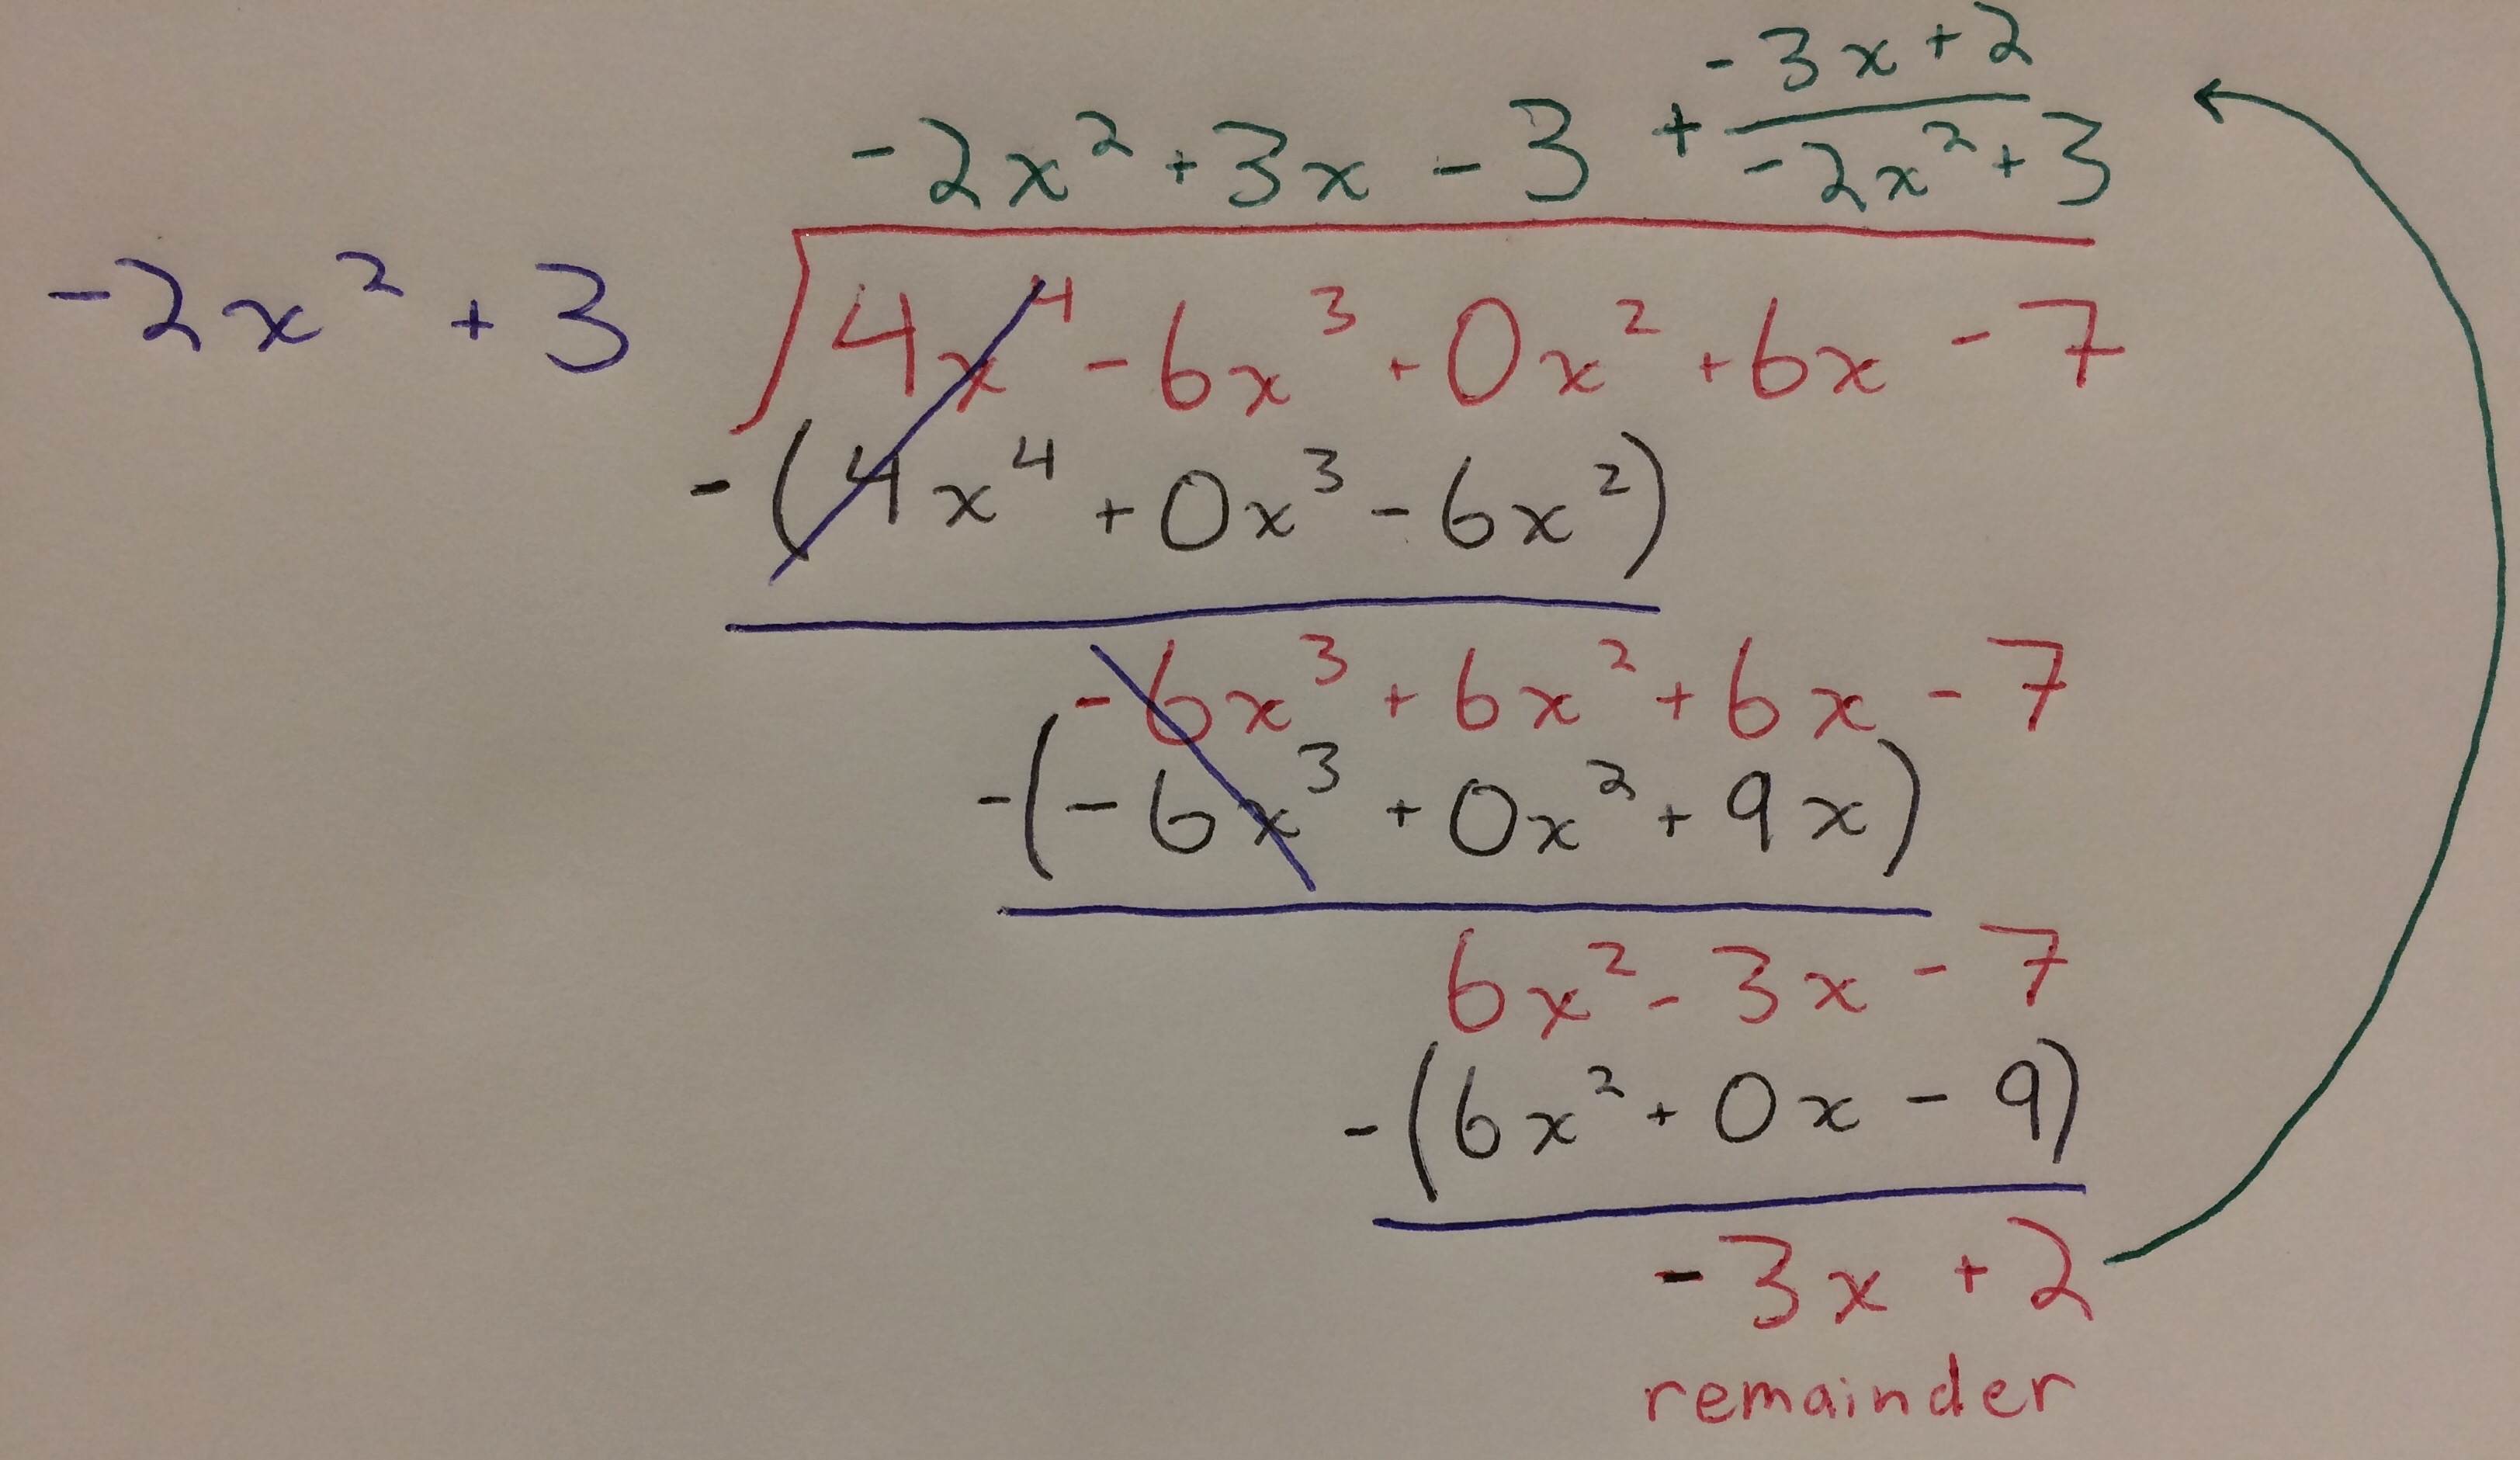 -3x+2
-2x² +3x - 3 + -2x²+3
-2x² + 3 4x⁴ - 6x³ + 0x² + 6x - 7
-(4x⁴ + 0x³ - 6x²)
-6x³ + 6x² + 6x - 7
-(-6x³ + 0x² + 9x)
6x² - 3x - 7
-(6x² + 0x - 9)
-3x + 2
remainder